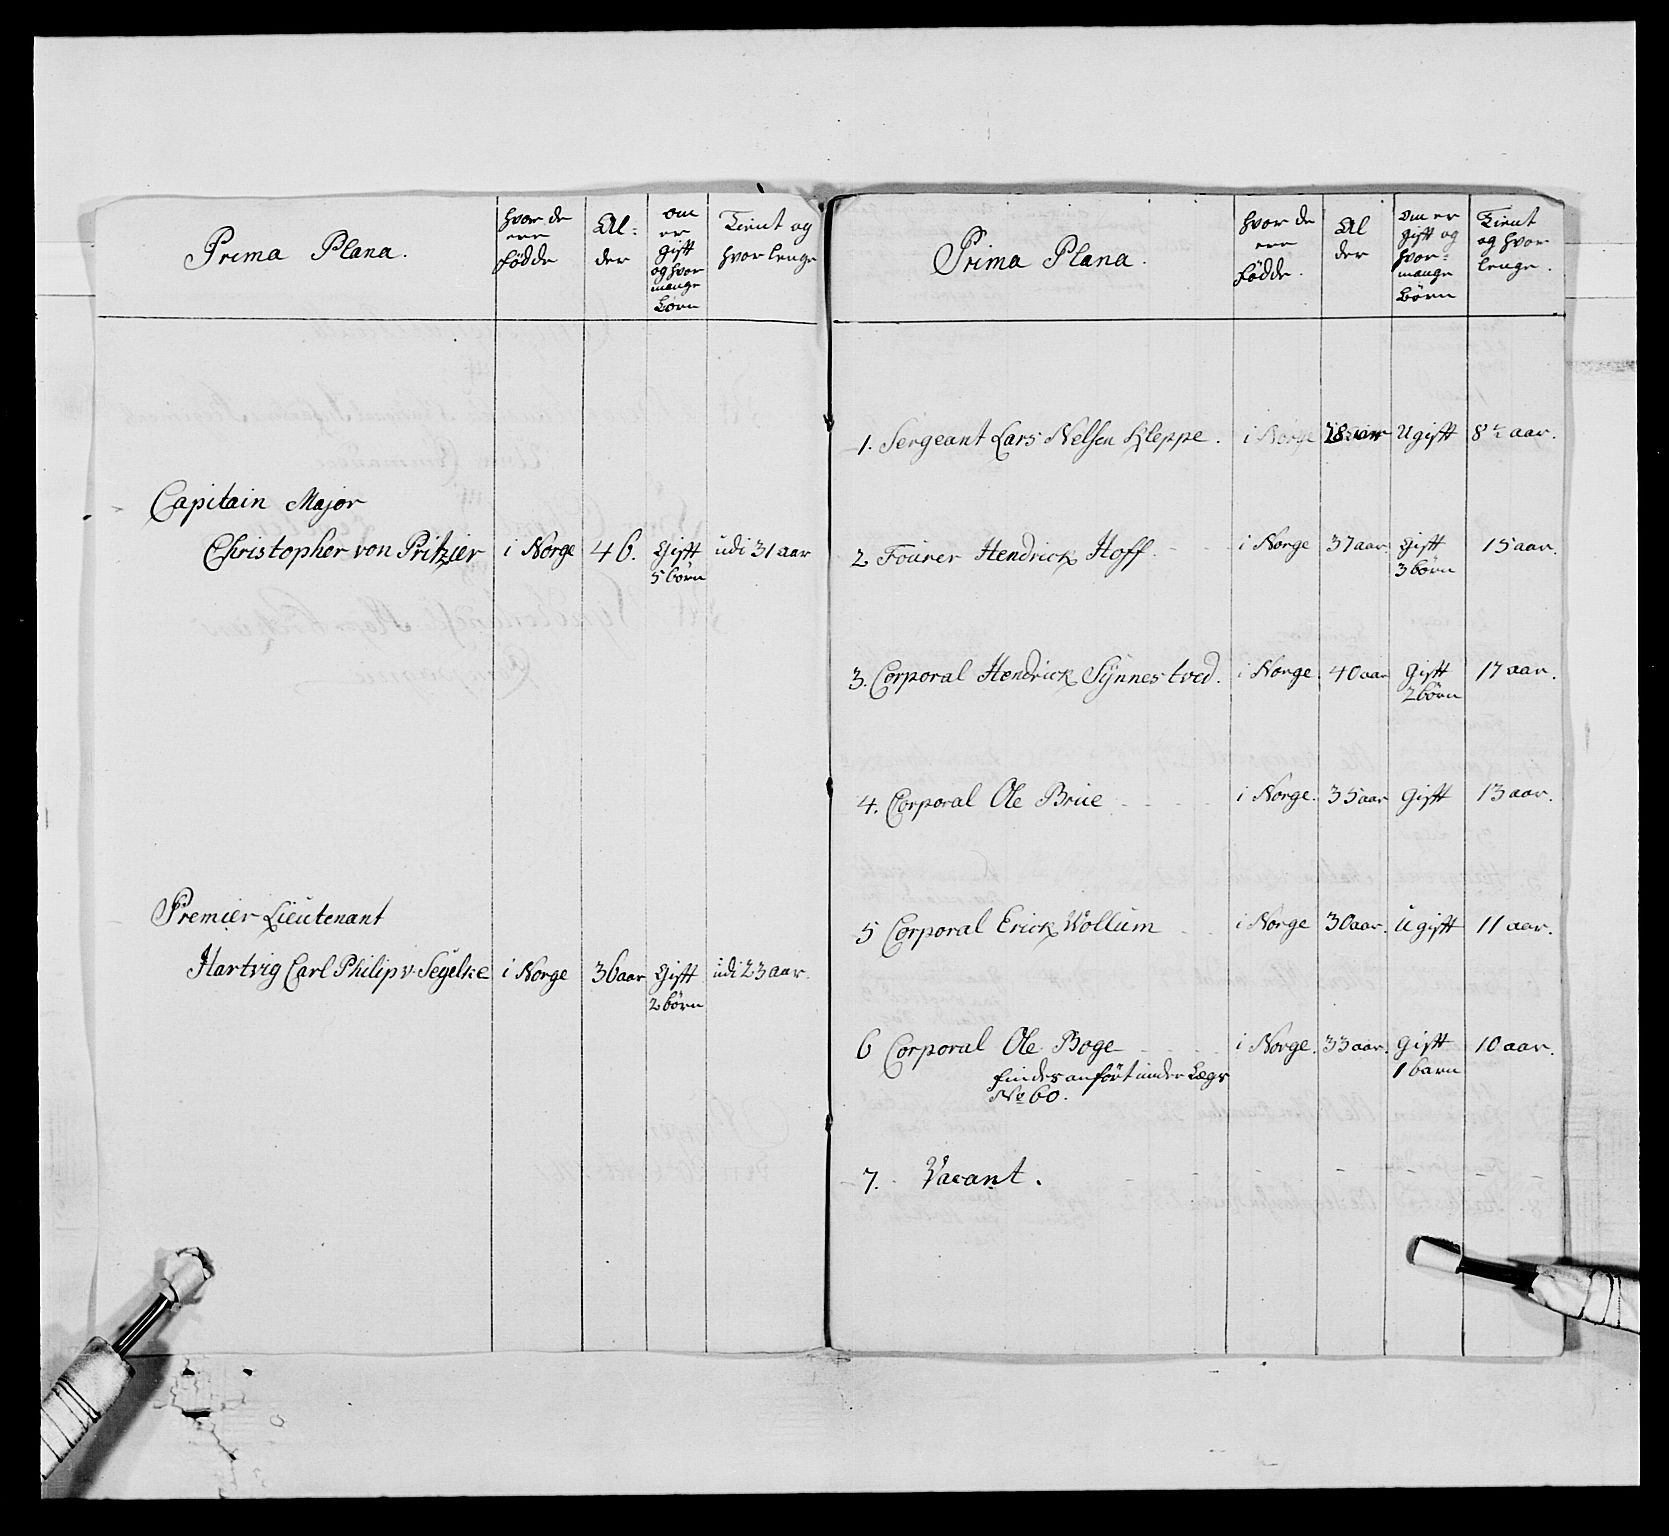 Prima Plana.
hvor de
ere
födde
Al-
der
om
er
gift
og hvor
mange
Börn
Tient og
hvor lenge
Capitain Major
Christopher von Pritzier i Norge 46. Gift udi 31 aar
5 börn
Premier Lieutenant
Hartvig Carl Philip v. Segelke i Norge 36 aar Gift udi 23 aar.
2 börn
Prima Plana.
hvor de
ere
födde.
Al
der
om er
gift og
hvor-
mange
Börn
Tient
og hvor
lenge.
1. Sergeant Lars Nelsen Kleppe. i Norge 28 aar Ugift 8½ aar.
2 Fourer Hendrick Hoff. i Norge 37 aar Gift 15 aar.
3 börn
3. Corporal Hendrick Synnestved. i Norge 40 aar Gift 17 aar.
2 börn
4. Corporal Ole Brue i Norge. 35 aar Gift 13 aar.
5 Corporal Erick Wollum i Norge 30 aar. Ugift 11 aar.
6 Corporal Ole Boge i Norge. 33 aar. Gift 10 aar.
findes anfört under Lægs 1 barn
No 60.
7. Vacant.